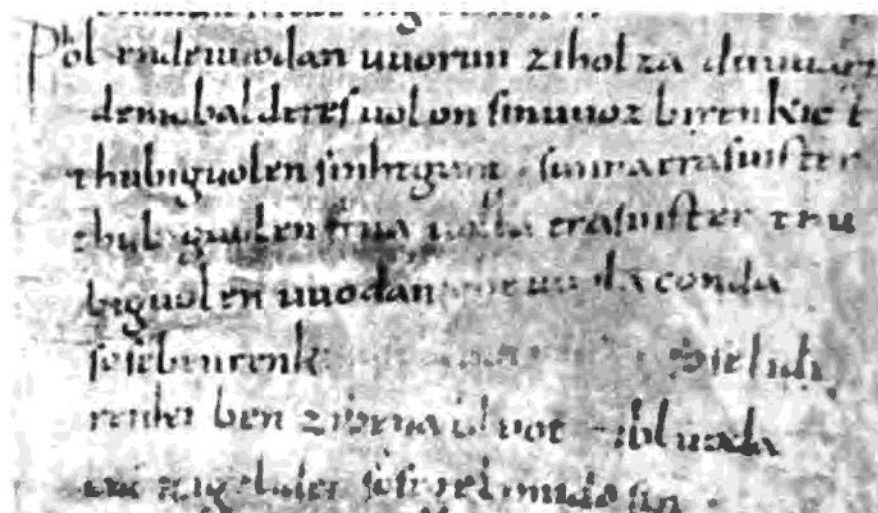 Phol endeuuodan uuorun ziholza duuuart
demobalderesuolon sinuuoz birenkict
thubiguolen sinhtgunt . sunnaerasuister
thubiguolen friia uolla erasuister thu
biguolen uuodan uuolaconda
sosebenrenki soselidi
renki ben zibena bluot zibluoda
lid zigeliden sosegelimidasin .